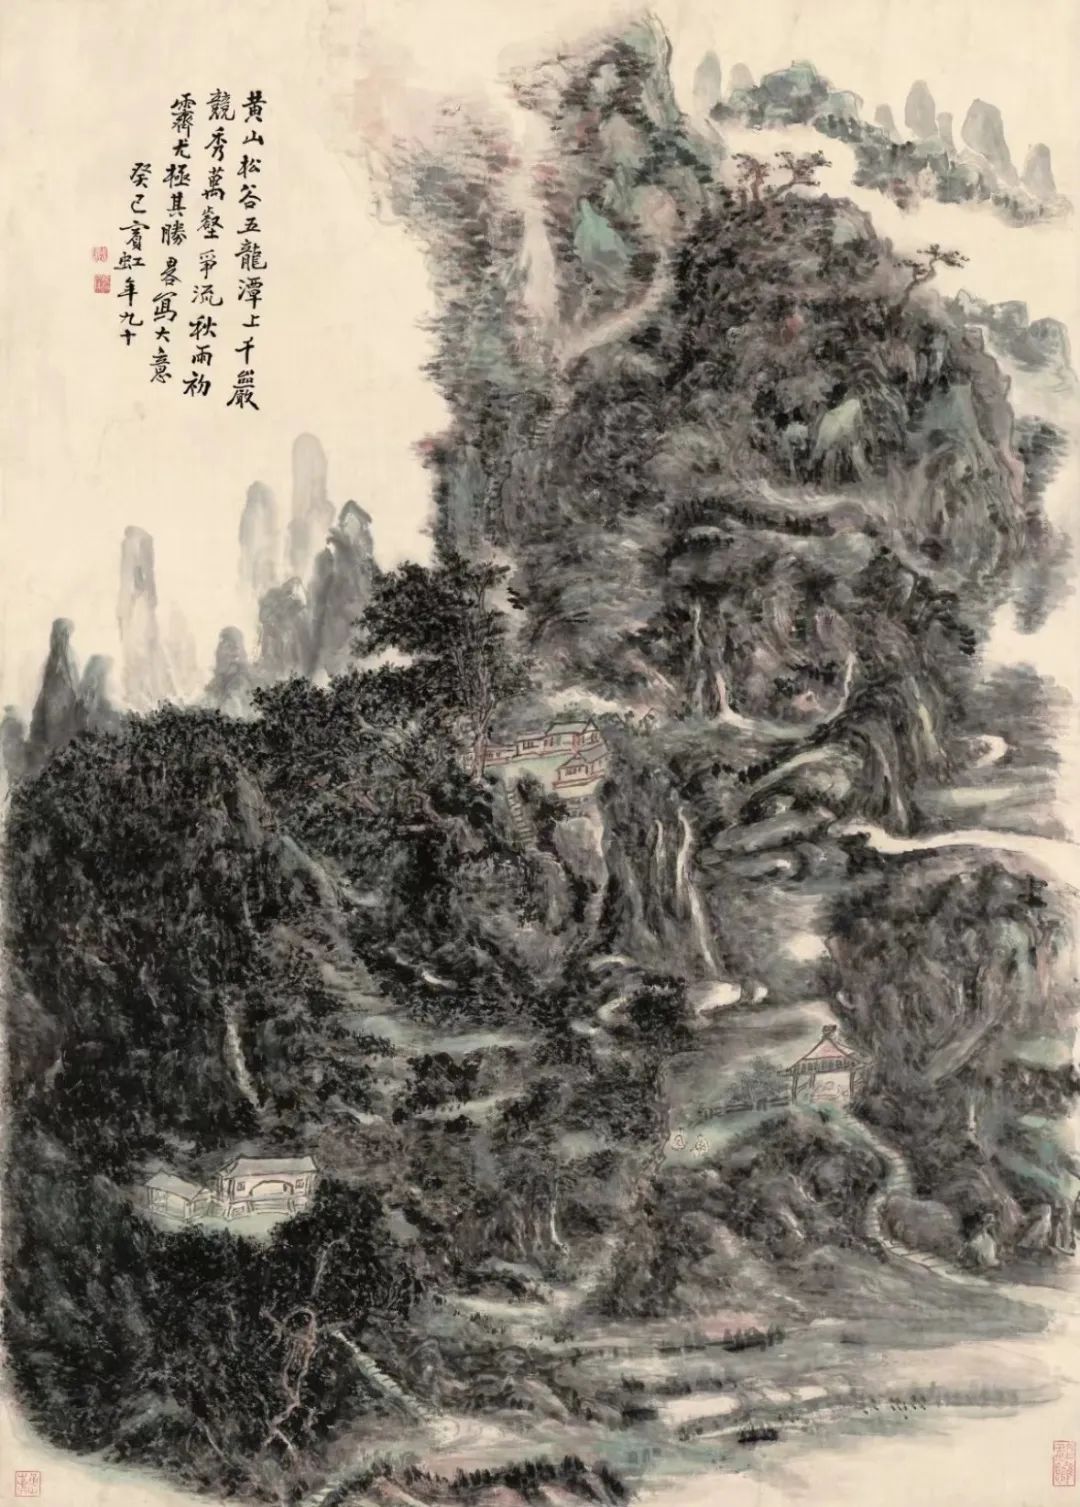 黄山松谷五龍潭上千巖
競秀萬壑爭流秋雨初
霽尤極其勝畧寫大意
癸巳賓虹年九十